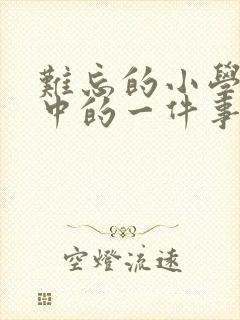 難忘的小學
中的一件事
空燈流遠